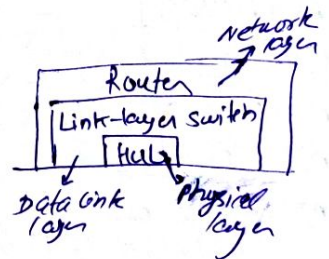 Network
layer
Router
Link-layer switch
Hub
Data link
layer
physical
layer